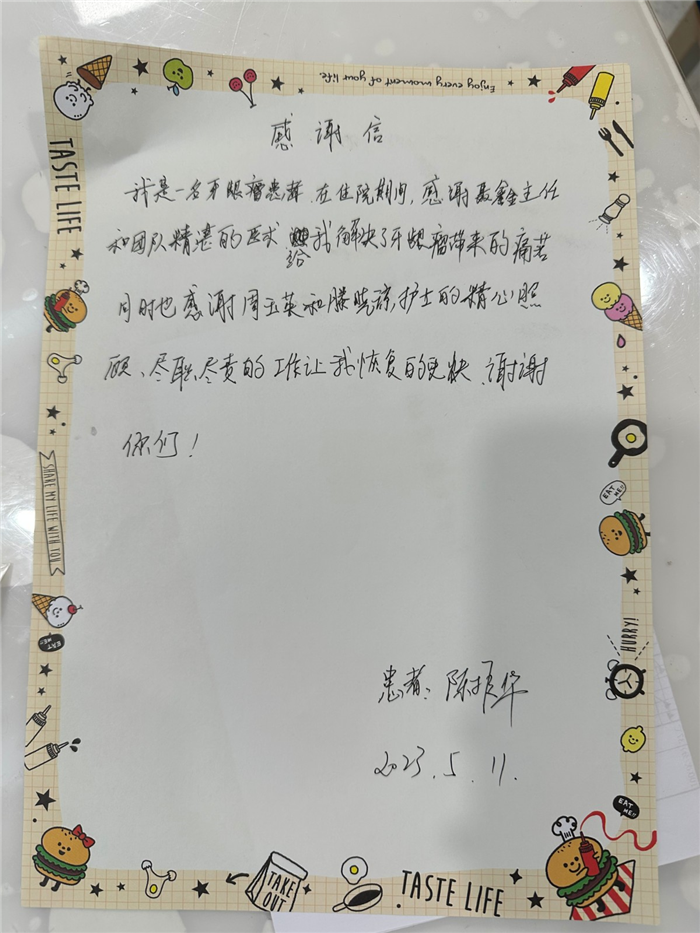 Enjoy every moment of your life.
TASTE LIFE
感谢信
我是一名牙龈瘤患者.在住院期间,感谢聂鑫主任
和团队精湛的医术 给我解决了牙龈瘤带来的痛苦
同时也感谢周玉英和滕晓 护士的精心照
顾、尽职尽责的工作让我恢复的更快.谢谢
你们!
SHARE MY LIFE WITH YOU
EAT ME!!
EAT ME!!
HURRY!
患者:陈振华
2023.5.11.
EAT ME!!
TAKE OUT
TASTE LIFE